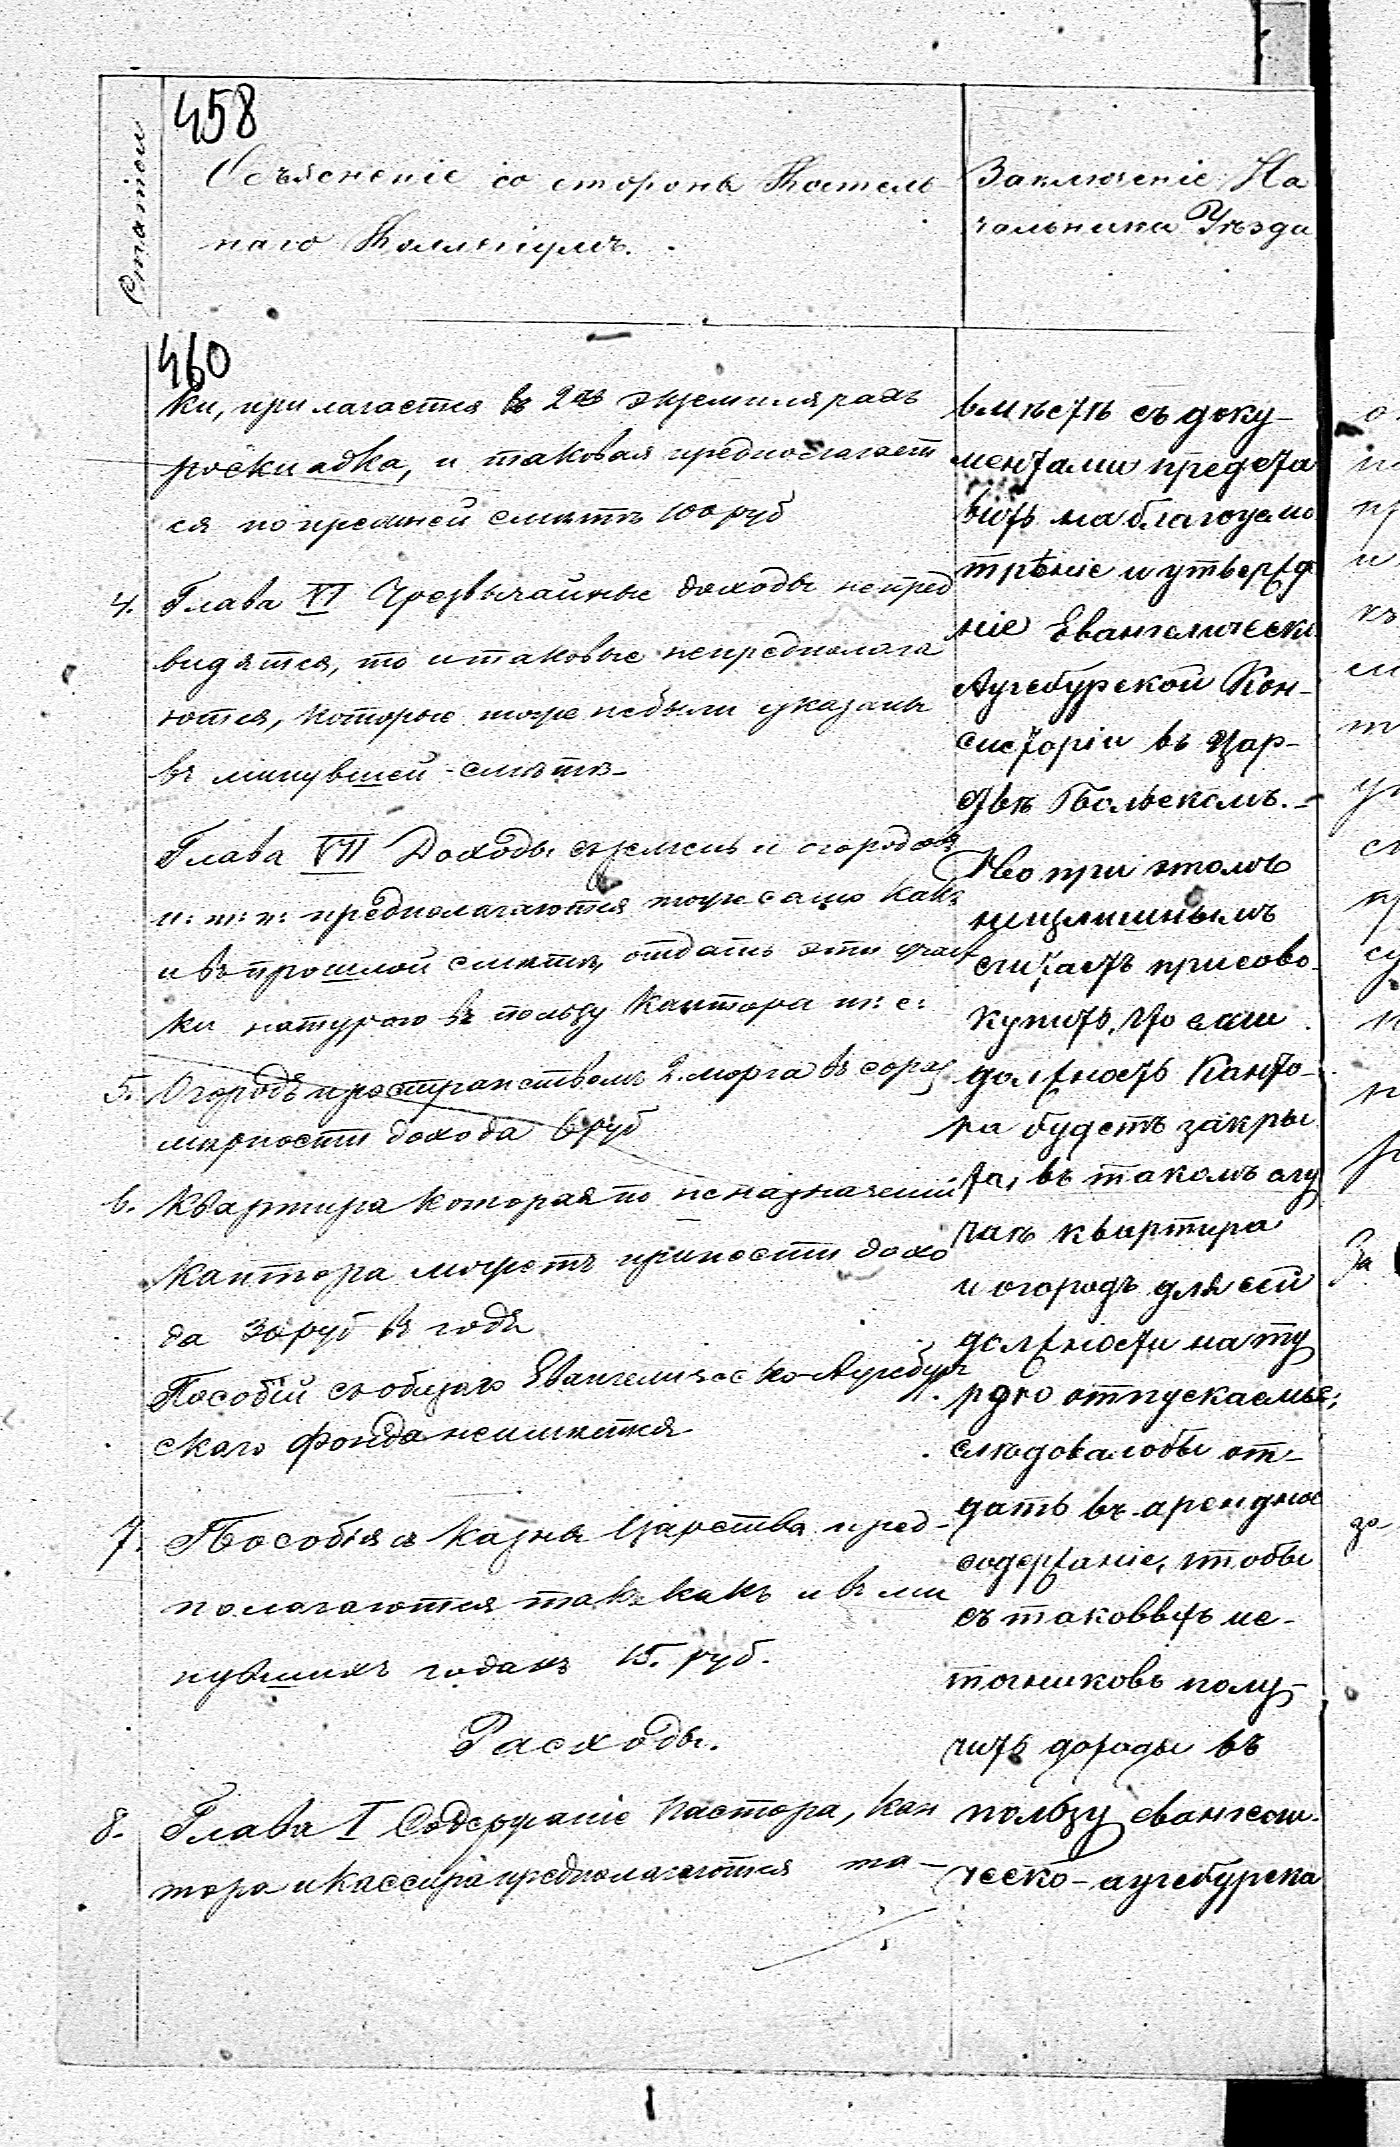 458
Статьи
Объясненіе со стороны Костель
наго Коллегіумъ.
Заключеніе На
чальника Уѣзда
460
ки, прилагается въ 2хъ экземплярахъ
роскладка, и таковая предполагает
ся по прежней смѣтѣ 100 руб
4. Глава VI Чрезвычайные доходы непред
видятся, то и таковые непредполага
ются, которые тоже небыли указаны
въ минувшей смѣтѣ
Глава VII Доходы съ земель и огородовъ
и: т: п: предполагаются тоже само какъ
и въ прошлой смѣтѣ, отдать эти участ
ки натурою въ пользу Кантора т: е:
5. Огородъ пространствомъ 2. морга въ сораз
мѣрности дохода 6 руб
6. Квартира которая по неназначеніи
Кантора можетъ приности дохо
да 30 руб въ годъ
Пособій съ общаго Евангелическо-Аугсбург
скаго фонда неимѣется
7. Пособія съ казны Царства пред-
полагаются такъ какъ и въ ми
нувшихъ годахъ 15. руб.
Расходы.
8. Глава I Содержаніе Пастора, Кан
тора и Кассира предполагаются та-
вмѣстѣ съ доку-
ментами предста
вить на благоусмо
трѣніе и утвержд
ніе Евангелически
Аугсбурской Кон-
систоріи въ Цар-
ствѣ Польскомъ.-
Но при этомъ
неизлишнымъ
считаетъ присово-
купить, что если
должность Канто-
ра будетъ закры
та, въ такомъ слу
чаѣ квартира
и огородъ для сей
должности нату
рдѣо отпускаемые;
слѣдовалобы от-
дать въ арендное
содержаніе, чтобы
съ таковыхъ ис-
точниковъ полу-
чить доходы въ
пользу евангели-
ческо-аугсбурска